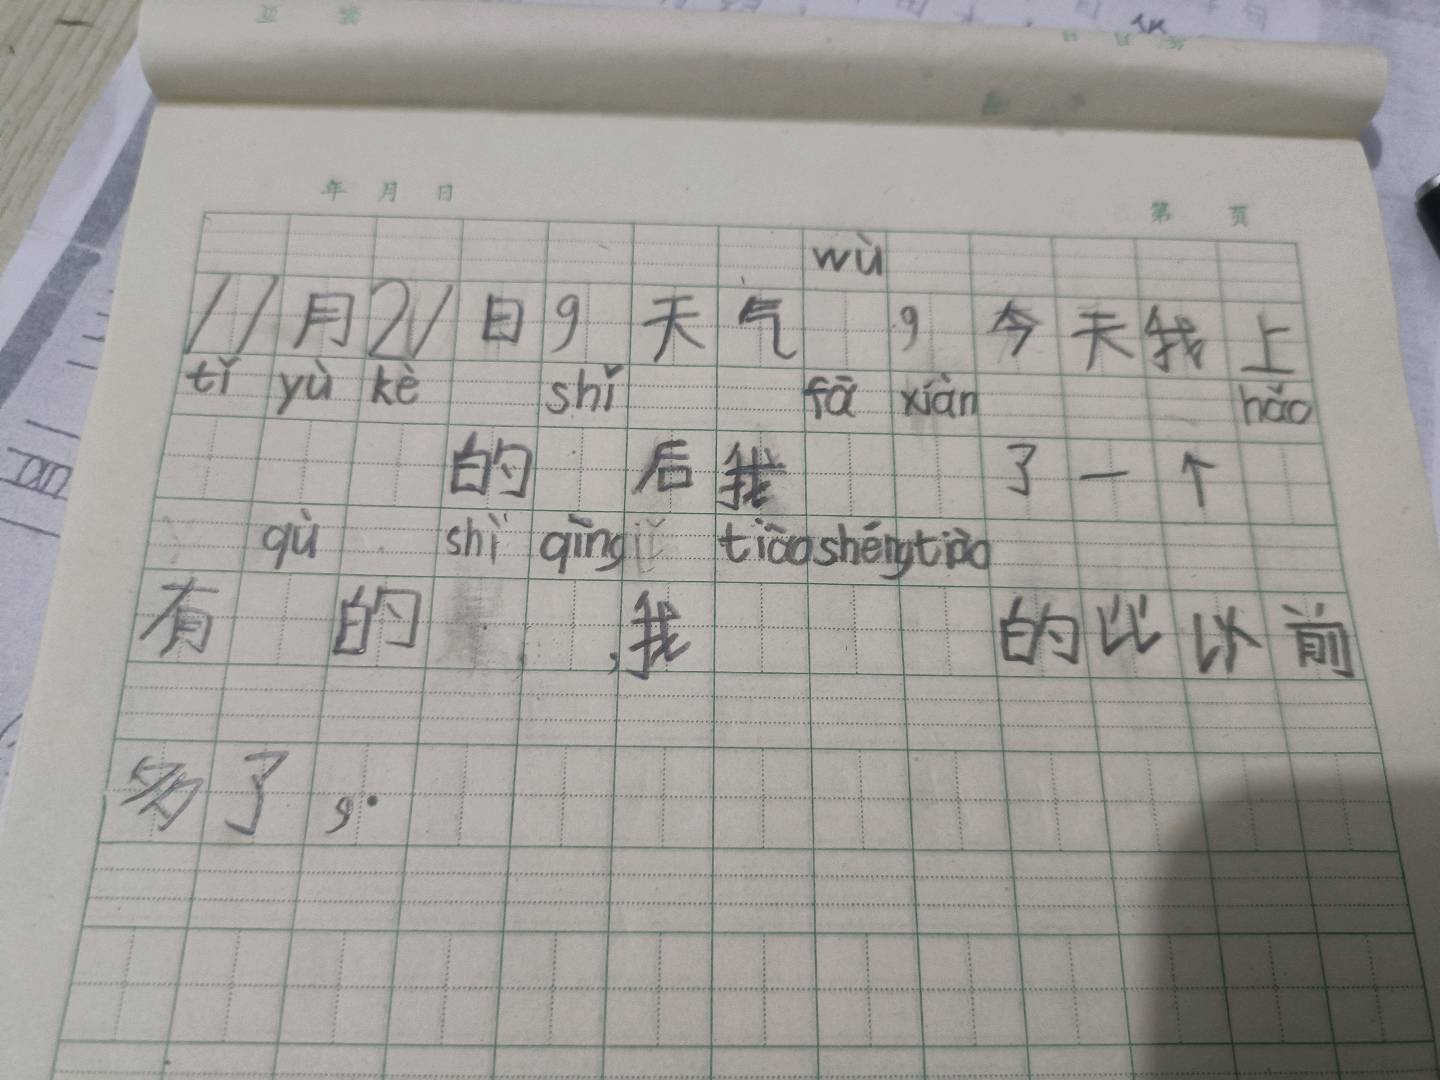 年 月 日
第 页
wù
11月21日,天气 ,今天我上
tǐ yù kè shǐ fā xiàn hǎo
的 后我 了一个
qù shì qīng tiāo shéng tiāo
有 的 ,我 的比以前
多了,.